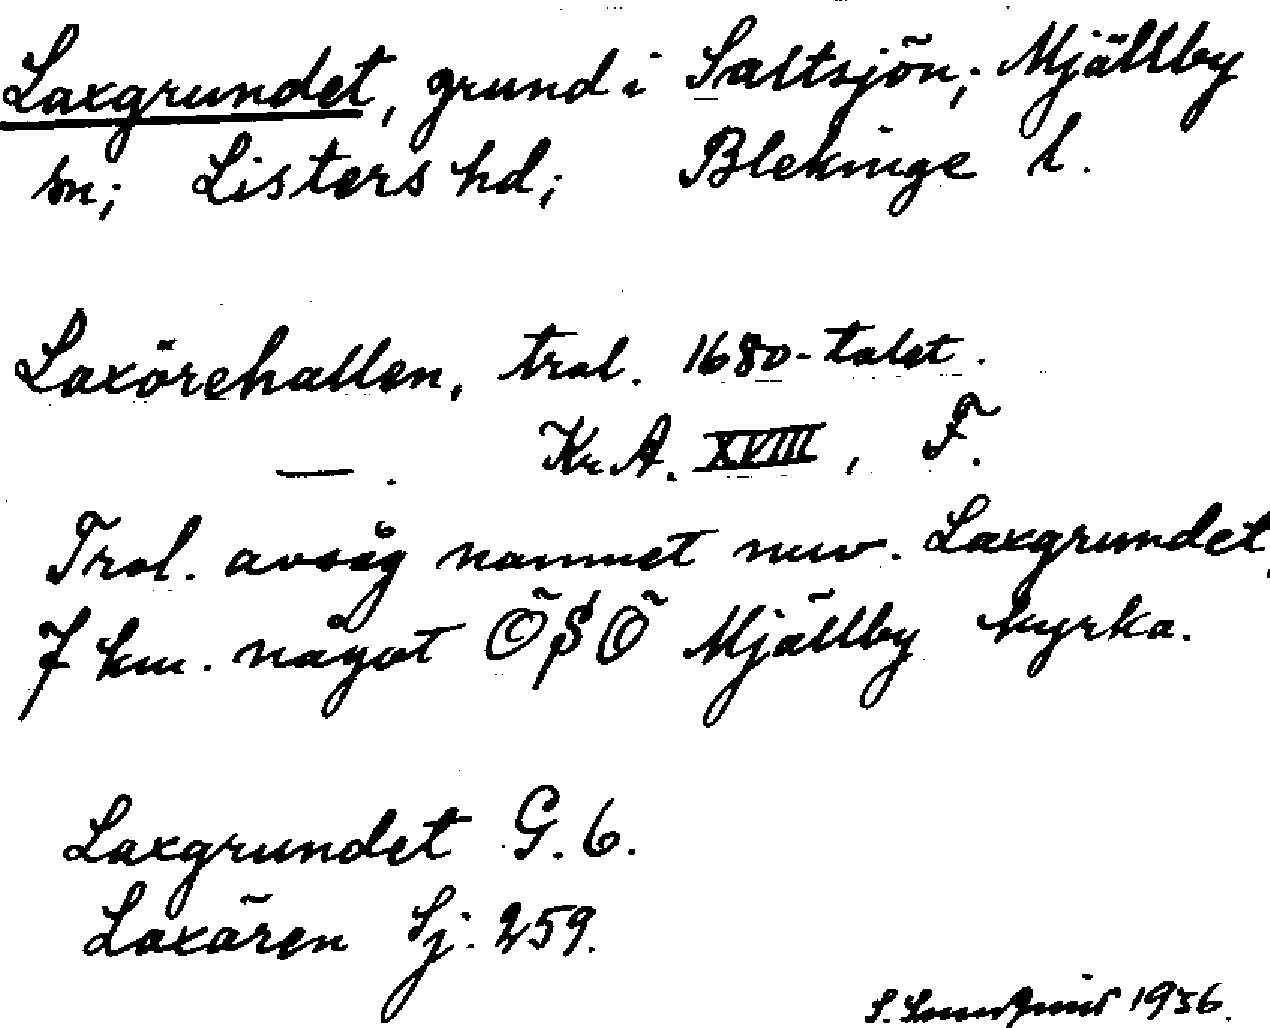 Laxgrundet, grund i Saltsjön; Mjällby
sn; Listers hd; Blekinge l.
Laxörehallen, trol. 1680-talet.
—. Kr.A. XVIII, F.
Trol. avsåg namnet nuv. Laxgrundet,
7 km. något ÖSÖ Mjällby kyrka.
Laxgrundet G. 6.
Laxären Sj. 259.
S. 1956.